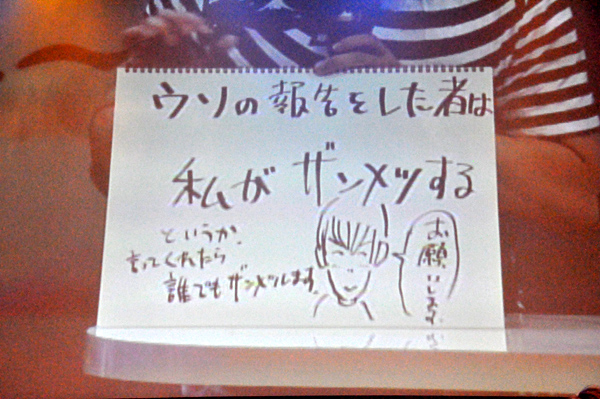 ウソの報告をした者は
私がザンメツする
というか、
言ってくれたら
誰でもザンメツします。
お願いします。